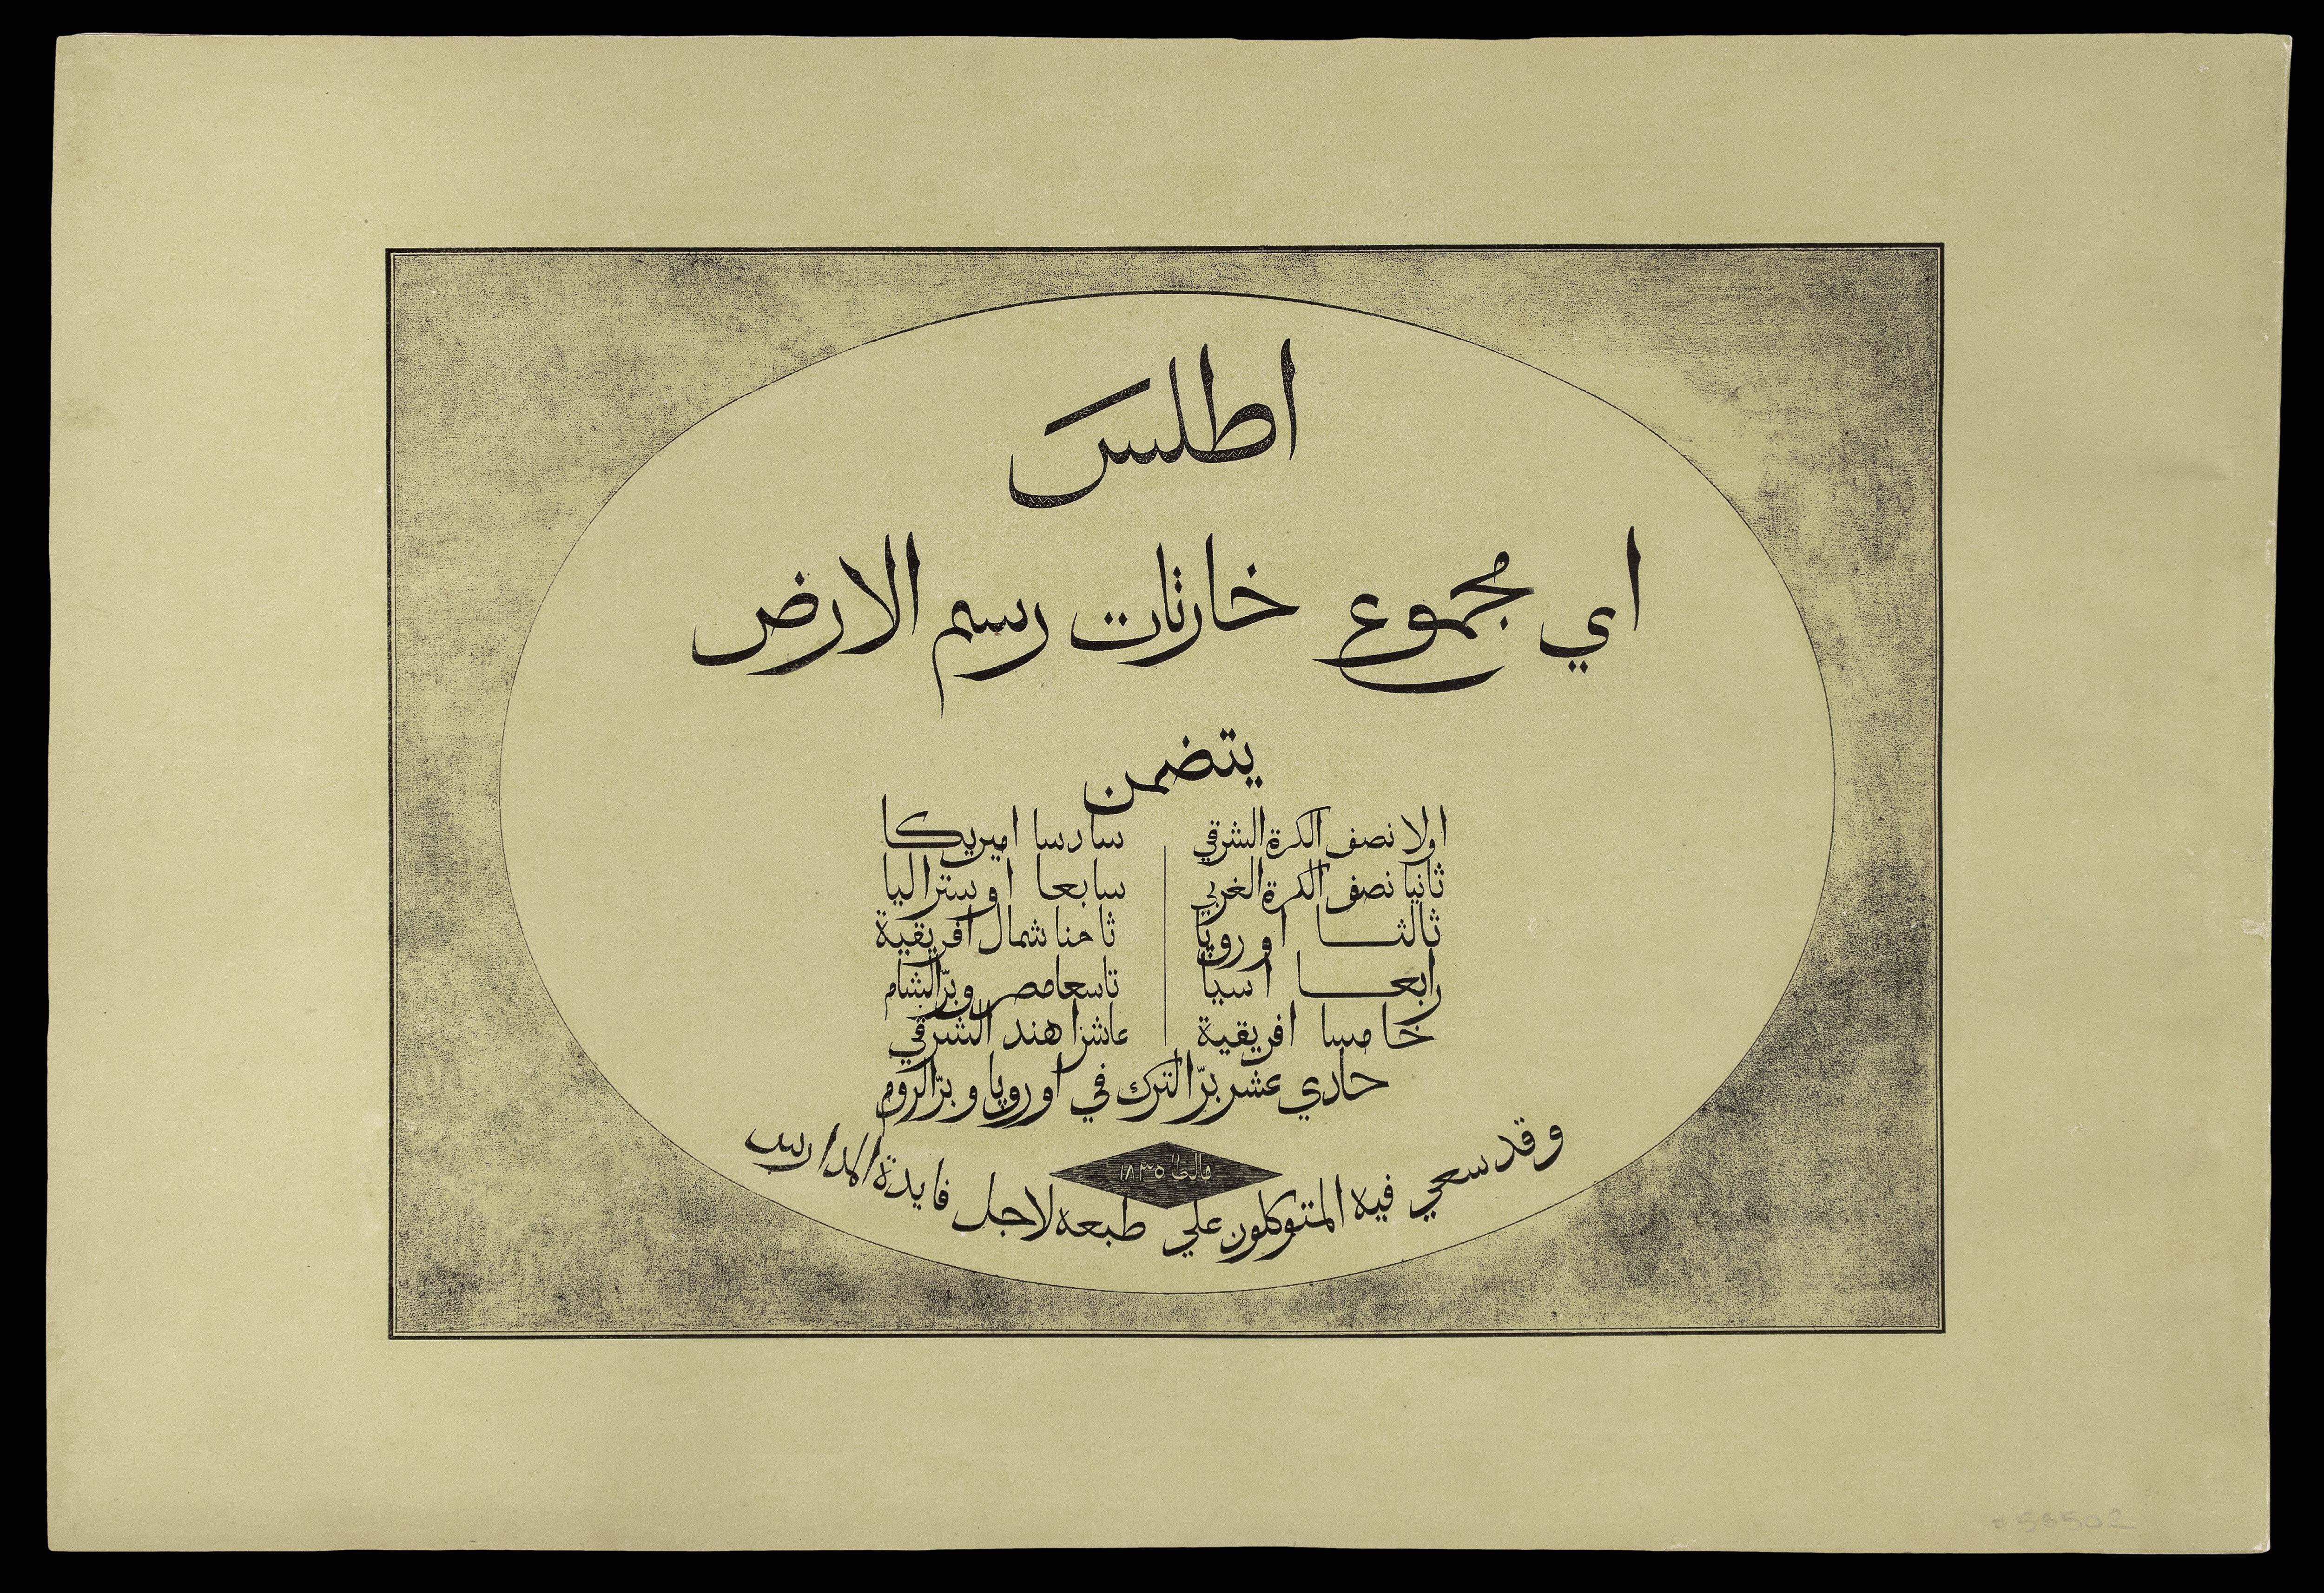 اطلس
اي مجموع خارتات رسم الارض
يتضمن
اولا نصف الكرة الشرقي
ثانيا نصف الكرة الغربي
ثالثا اوروپا
رابعا اسيا
خامسا افريقية
سادسا اميريكا
سابعا اوستراليا
ثامنا شمال افريقية
تاسعا مصر وبرّ الشام
عاشرا هند الشرقي
حادي عشر برّ الترك في اوروپا وبرّ الروم
مالطا ١٨٣٥
وقد سعي فيه المتوكلون علي طبعه لاجل فايدة المدارس
#56502